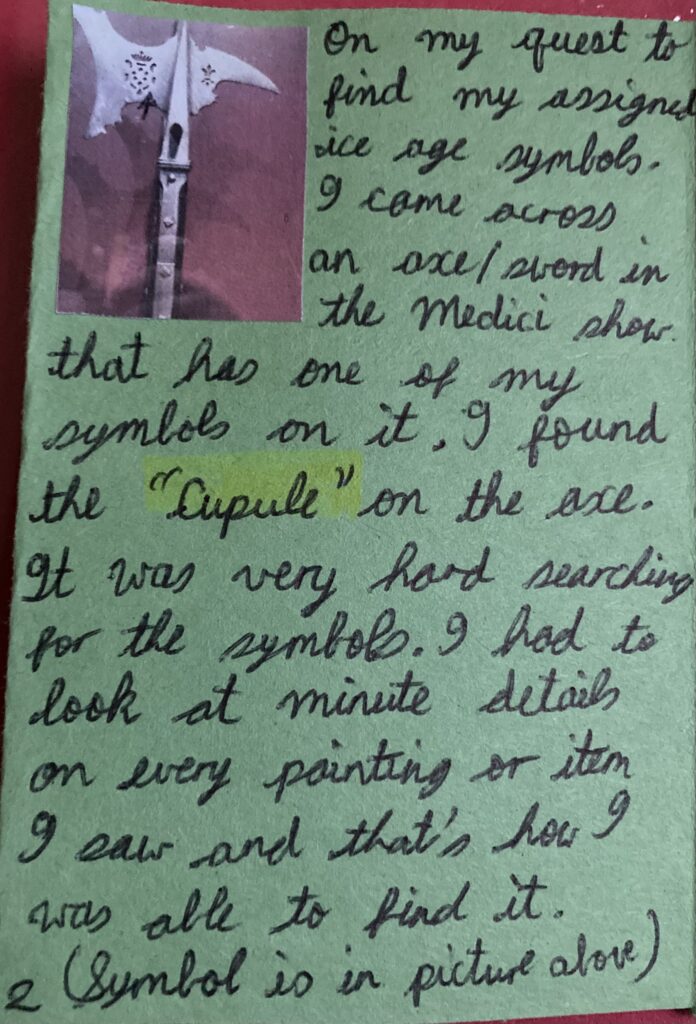 On my quest to
find my assigned
ice age symbols.
I came across
an axe/sword in
the Medici show.
that has one of my
symbols on it. I found
the "Cupule" on the axe.
It was very hard searching
for the symbols. I had to
look at minute details
on every painting or item
I saw and that's how I
was able to find it.
2 (Symbol is in picture above)